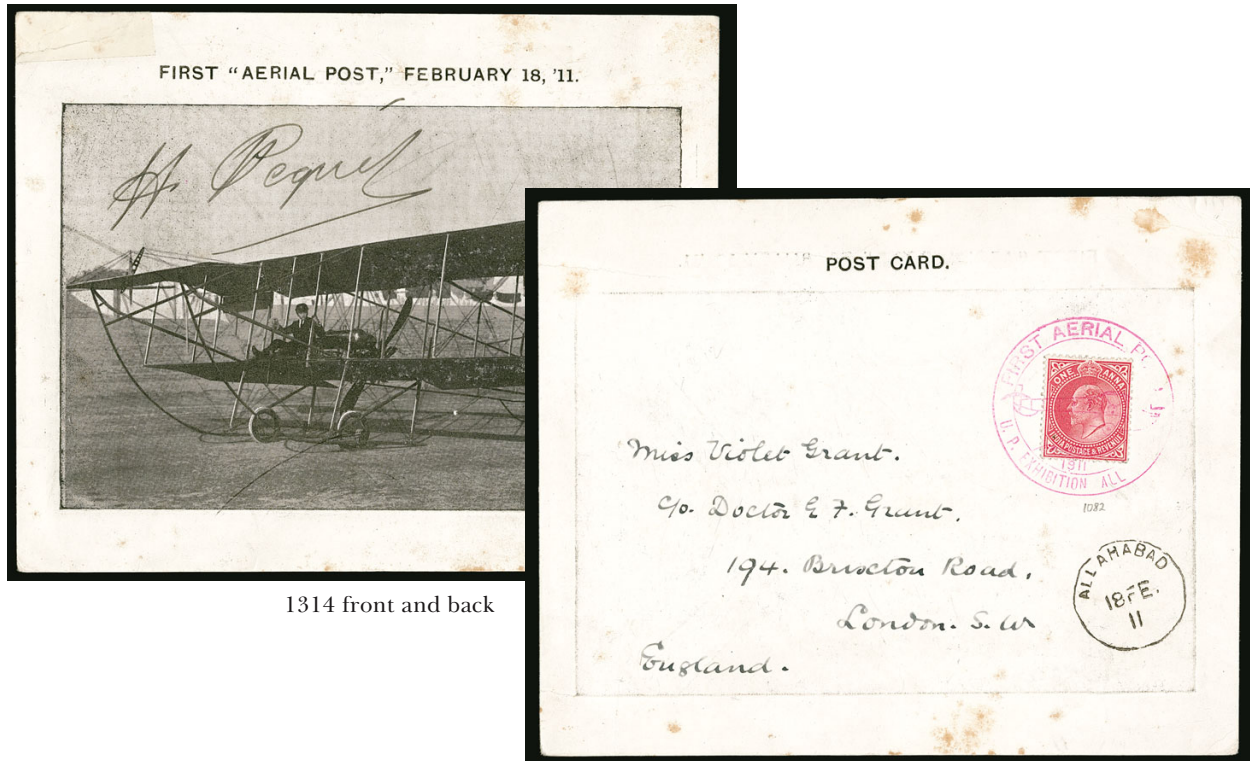 FIRST “AERIAL POST,” FEBRUARY 18, ’11.
H. Pequet
POST CARD.
FIRST AERIAL PO
U. P. EXHIBITION ALL
1911
ONE ANNA
INDIA POSTAGE & REVENUE
1082
Miss Violet Grant.
c/o. Doctor E F. Grant.
194. Brixton Road.
London. S. W
England.
ALLAHABAD
18 FE.
11
1314 front and back